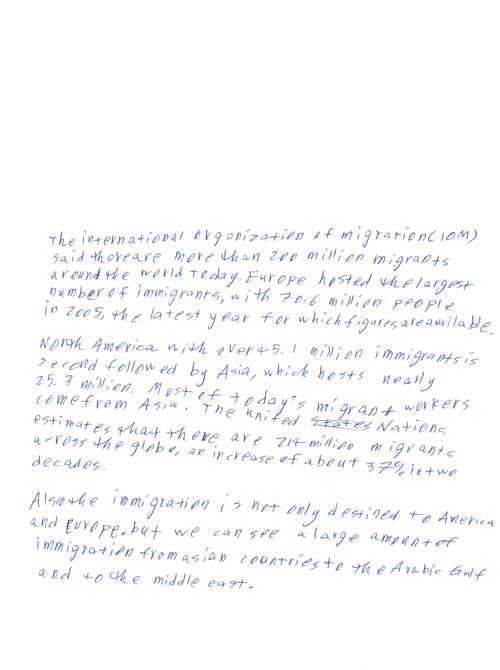 The international organization of migration(IOM)
said thereare more than 200 million migrants
around the world today. Europe hosted the largest
number of immigrants, with 70.6 million people
in 2005, the latest year for which figures are available.
North America with over 45.1 million immigrants is
second followed by Asia, which hosts nearly
25.3 million. Most of today's migrant workers
come from Asia. The united states Nations
estimates that there are 214 million migrants
across the globe, an increase of about 37% in two
decades.
Also the immigration is not only destined to America
and Europe, but we can see a large amount of
immigration from asian countries to the Arabic Gulf
and to the middle east.